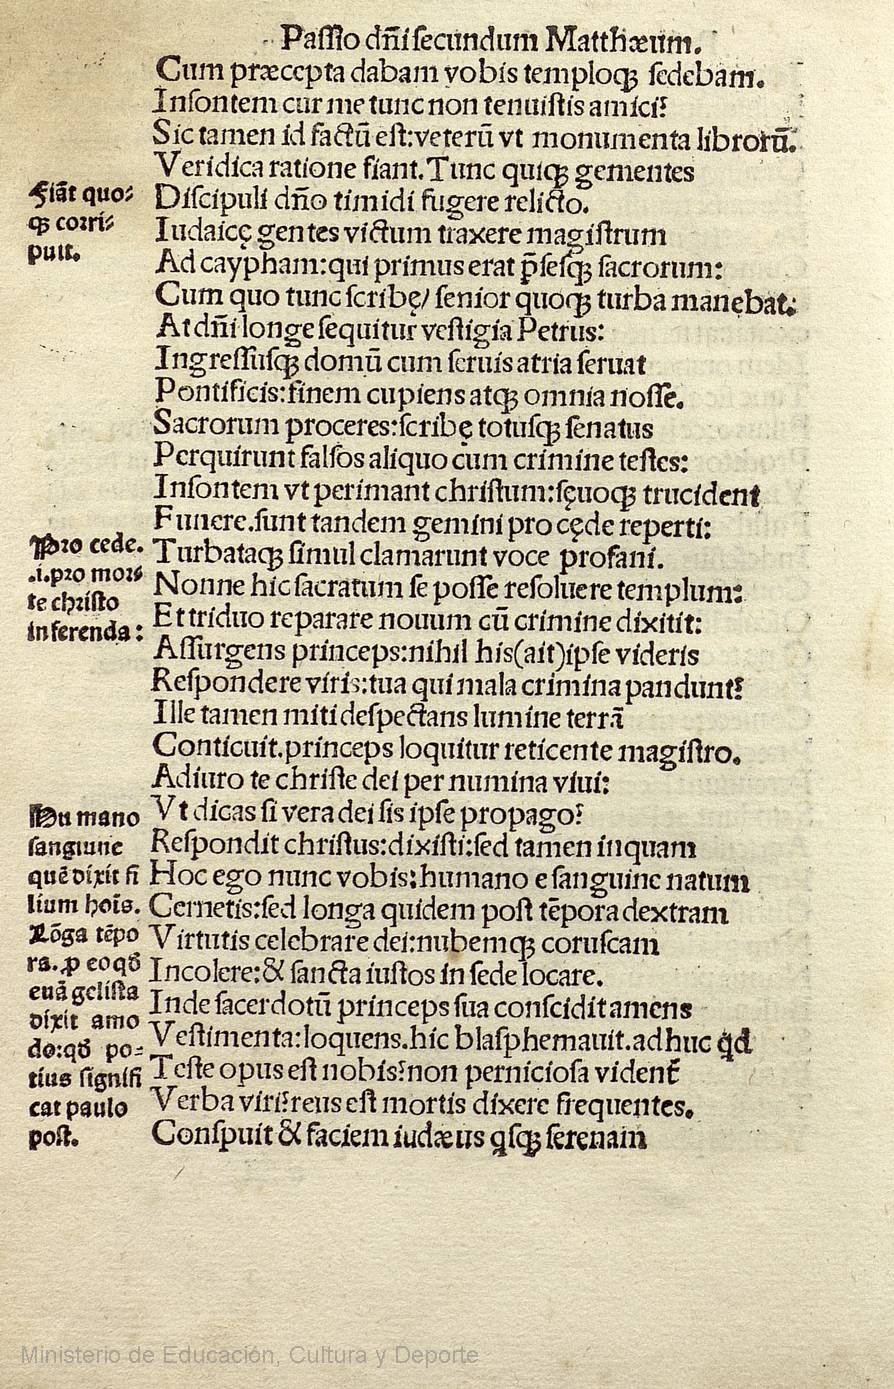 Paſſio dñi ſecundum Matthæum.
Cum præcepta dabam vobis temploqꝫ ſedebam.
Inſontem cur me tunc non tenuiſtis amici?
Sic tamen id factũ eſt:veterũ vt monumenta librorũ.
Veridica ratione fiant.Tunc quiqꝫ gementes
Diſcipuli dño timidi fugere relicto.
Iudaicę gentes victum traxere magiſtrum
Ad caypham:qui primus erat p̃ſeſqꝫ ſacrorum:
Cum quo tunc ſcribę/ ſenior quoqꝫ turba manebat:
At dñi longe ſequitur veſtigia Petrus:
Ingreſſuſqꝫ domũ cum ſeruis atria ſeruat
Pontificis:finem cupiens atqꝫ omnia noſſe.
Sacrorum proceres:ſcribę totuſqꝫ ſenatus
Perquirunt falſos aliquo cum crimine teſtes:
Inſontem vt perimant chriſtum:ſęuoqꝫ trucident
Funere.ſunt tandem gemini pro cęde reperti:
Turbataqꝫ ſimul clamarunt voce profani.
Nonne hic ſacratum ſe poſſe reſoluere templum:
Et triduo reparare nouum cũ crimine dixitit:
Aſſurgens princeps:nihil his(ait)ipſe videris
Reſpondere viris:tua qui mala crimina pandunt?
Ille tamen miti deſpectans lumine terrã
Conticuit.princeps loquitur reticente magiſtro.
Adiuro te chriſte dei per numina viui:
Vt dicas ſi vera dei ſis ipſe propago?
Reſpondit chriſtus:dixiſti:ſed tamen inquam
Hoc ego nunc vobis:humano e ſanguine natum
Cernetis:ſed longa quidem poſt tẽpora dextram
Virtutis celebrare dei:nubemqꝫ coruſcam
Incolere:& ſancta iuſtos in ſede locare.
Inde ſacerdotũ princeps ſua conſcidit amens
Veſtimenta:loquens.hic blaſphemauit.adhuc q̃d
Teſte opus eſt nobis?non pernicioſa videnť
Verba viri?reus eſt mortis dixere frequentes.
Conſpuit & faciem iudæus qſqꝫ ſerenam
Fiãt quo⸗
qꝫ corri⸗
puit.
Pro cede.
.i.pro mor⸗
te chriſto
inferenda:
Hu mano
ſanguine
quẽ dixit fi
lium hoĩs.
Lõga tẽpo
ra.ꝓ eo qđ
euãgeliſta
dixit amo
do:qđ po⸗
tius ſignifi
cat paulo
poſt.
Ministerio de Educación, Cultura y Deporte